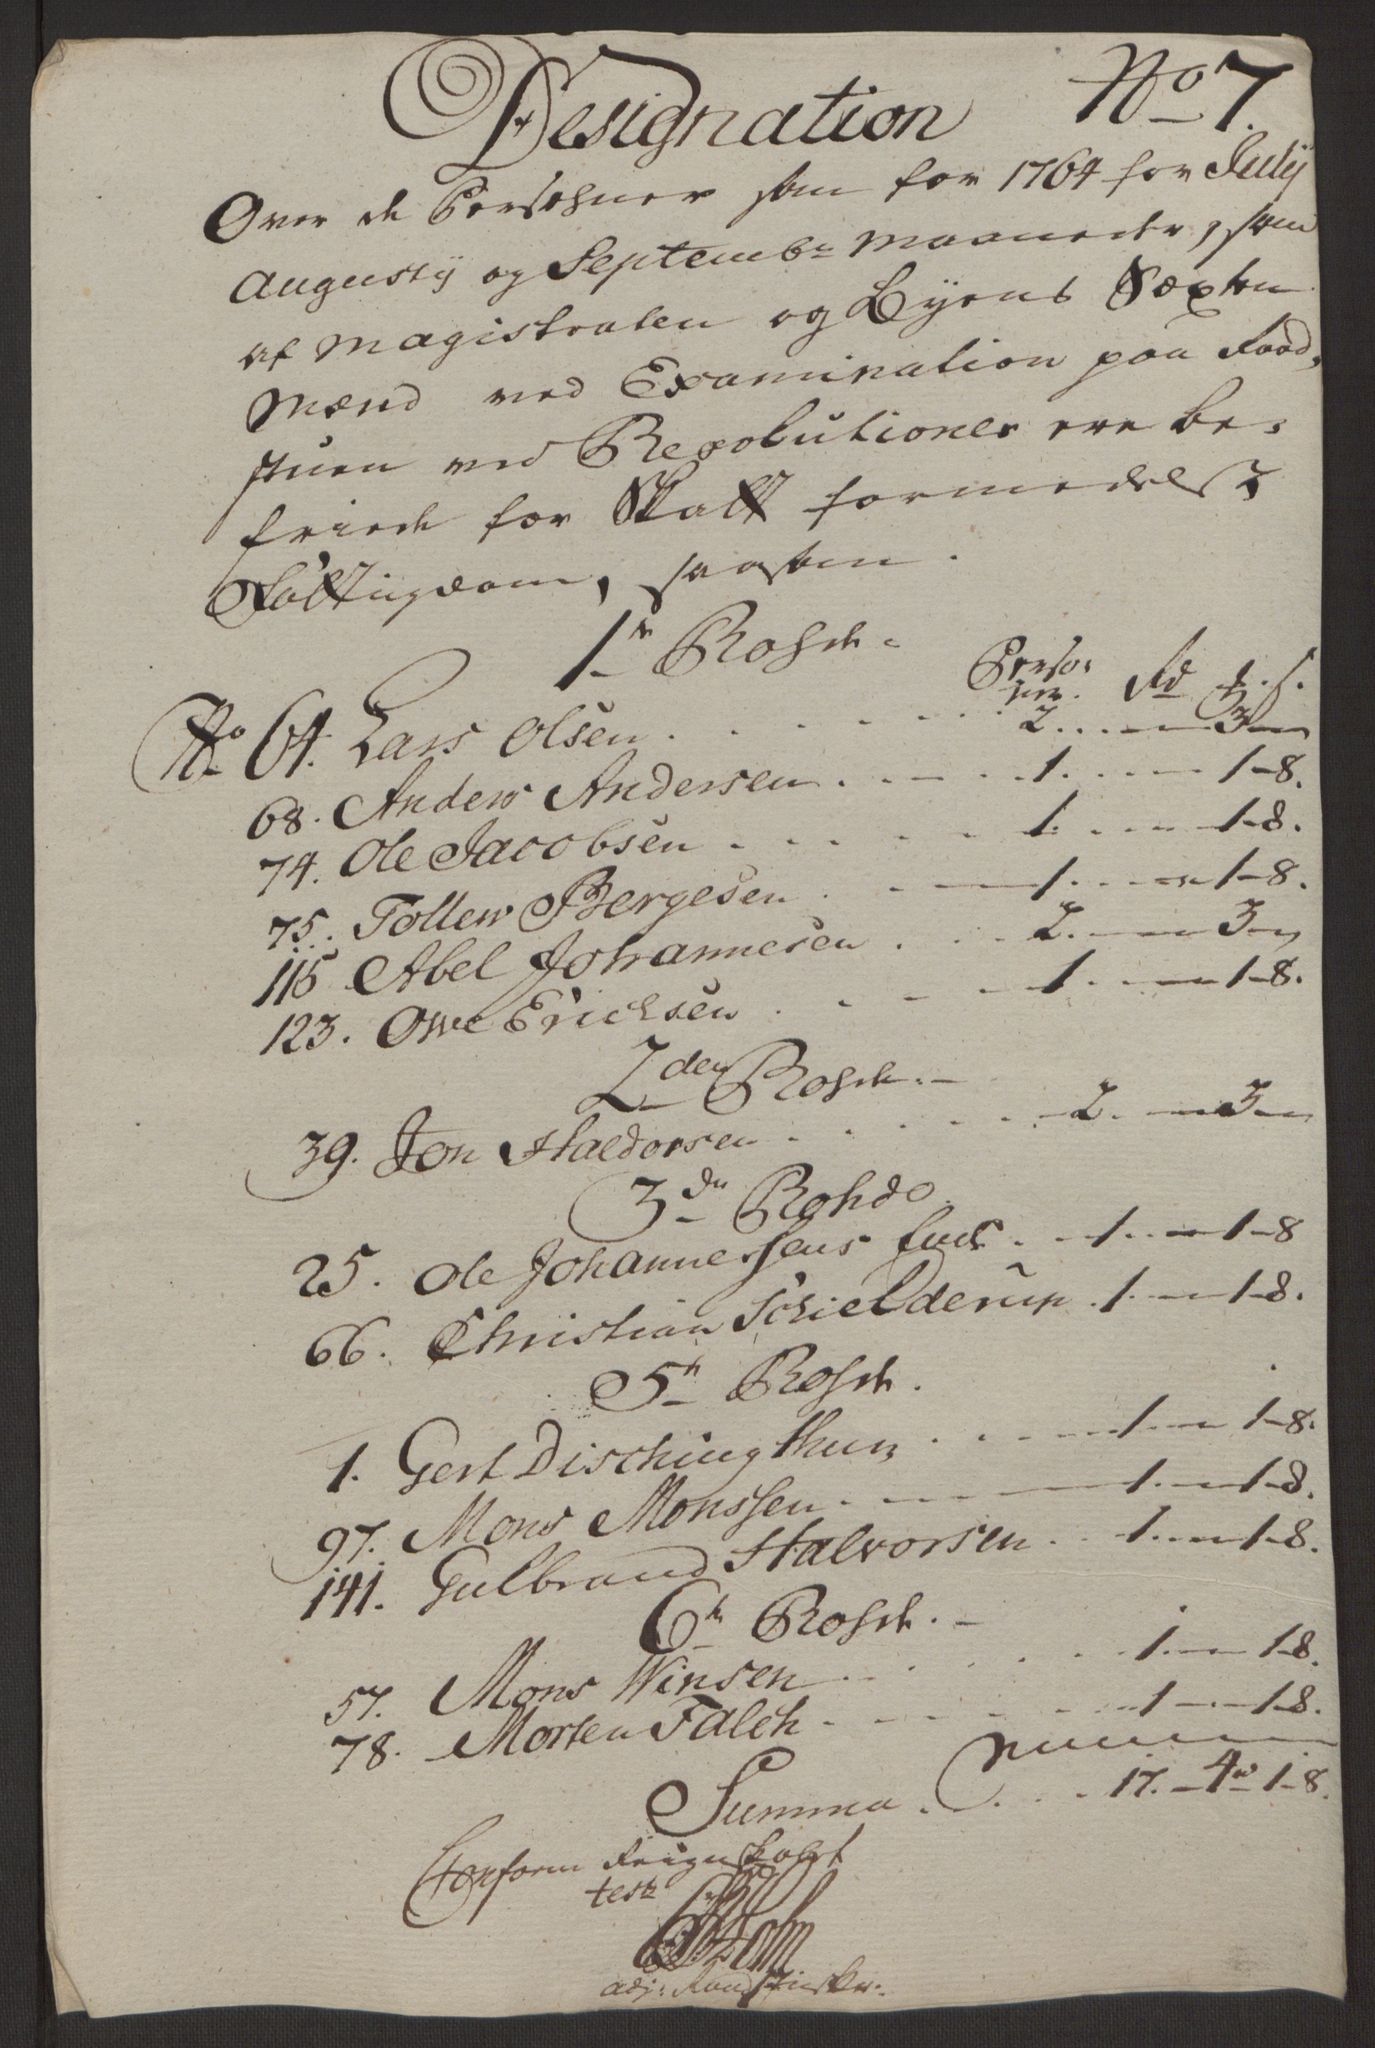 Designation No 7.
Over de Persohner som for 1764 for Julÿ
Augustÿ og Septembr Maaneder, som
af Magistraten og Byens Sexten
Mænd ved Examination paa Raad,
stuen ved Resolutioner ere be,
friede for Skatt formedelst
Fattigdom, saasom.
1te Rohde
Perso,
ner. Rd ß.
No 64. Lars Olsen . . . 2 . . . 3 —
68. Anders Andersen . . . 1 . . . 1 - 8.
74. Ole Jacobsen . . . 1. . . 1 - 8.
75. Tollew Bergesen . . . 1. . . 1 - 8.
115 Abel Johannesen . . . 2. . . 3 —
123. Owe Erichsen . . . 1. . . 1 - 8.
2den Rohde. —
39. Jon Haldorsen . . . 2. . . 3 —
3de Rohde
25. Ole Johannessens . . 1. . . 1 - 8
66. Christian Schielderup . 1. . . 1 - 8.
5te Rohde.
1. Gert Dischingthun . . . 1. . . 1 - 8.
97. Mons Monssen . . . 1. . . 1 - 8.
141. Gulbrand Halvorsen . . 1. . . 1 - 8.
6te Rohde. —
57. Mons Winsen . . . 1. . . 1 - 8.
78. Morten Falch . . . 1 . . . 1 - 8.
Summa . . . 17. — 4 — 1 - 8.
Conform
test
Holm
adj: